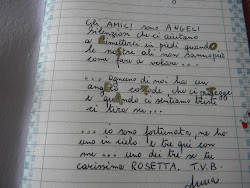 Gli AMICI sono ANGELI
silenziosi che ci aiutano
a rimetterci in piedi quando
le nostre ali non sanno più
come fare a volare...
... ognuno di noi ha un
angelo custode che ci protegge
e quando ci sentiamo tristi
ci tira su...
... io sono fortunata, ne ho
uno in cielo e tre qui con
me... uno dei tre se tu
carissima ROSETTA. T.V.B.